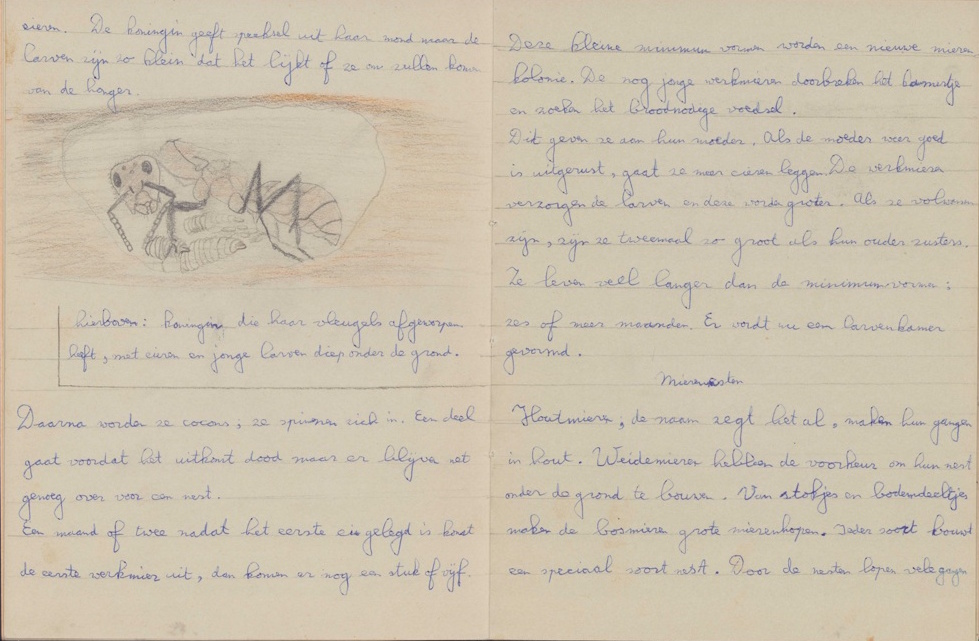 eieren. De koningin geeft speeksel uit haar mond maar de
larven zijn zo klein dat het lijkt of ze om zullen komen
van de honger.
hierboven: koningin die haar vleugels afgeworpen
heft, met eieren en jonge larven diep onder de grond.
Daarna worden ze cocons; ze spinnen zich in. Een deel
gaat voordat het uitkomt dood maar er blijven net
genoeg over voor een nest.
Een maand of twee nadat het eerste ei gelegd is komt
de eerste werkmier uit, dan komen er nog een stuk of vijf.
Deze kleine minimum vormen worden een nieuwe mieren
kolonie. De nog jonge werkmieren doorbreken het kamertje
en zoeken het broodnodige voedsel.
Dit geven ze aan hun moeder. Als de moeder weer goed
is uitgerust, gaat ze meer eieren leggen. De werkmieren
verzorgen de larven en deze worden groter. Als ze volwassen
zijn, zijn ze tweemaal zo groot als hun ouder zusters.
Ze leven veel langer dan de minimumvormen:
zes of meer maanden. Er wordt nu een larvenkamer
gevormd.
Mierennesten
Houtmieren; de naam zegt het al, maken hun gangen
in hout. Weidemieren hebben de voorkeur om hun nest
onder de grond te bouwen. Van stokjes en bodemdeeltjes
maken de bosmieren grote mierenhopen. Ieder soort bouwt
een speciaal soort nest. Door de nesten lopen vele gangen